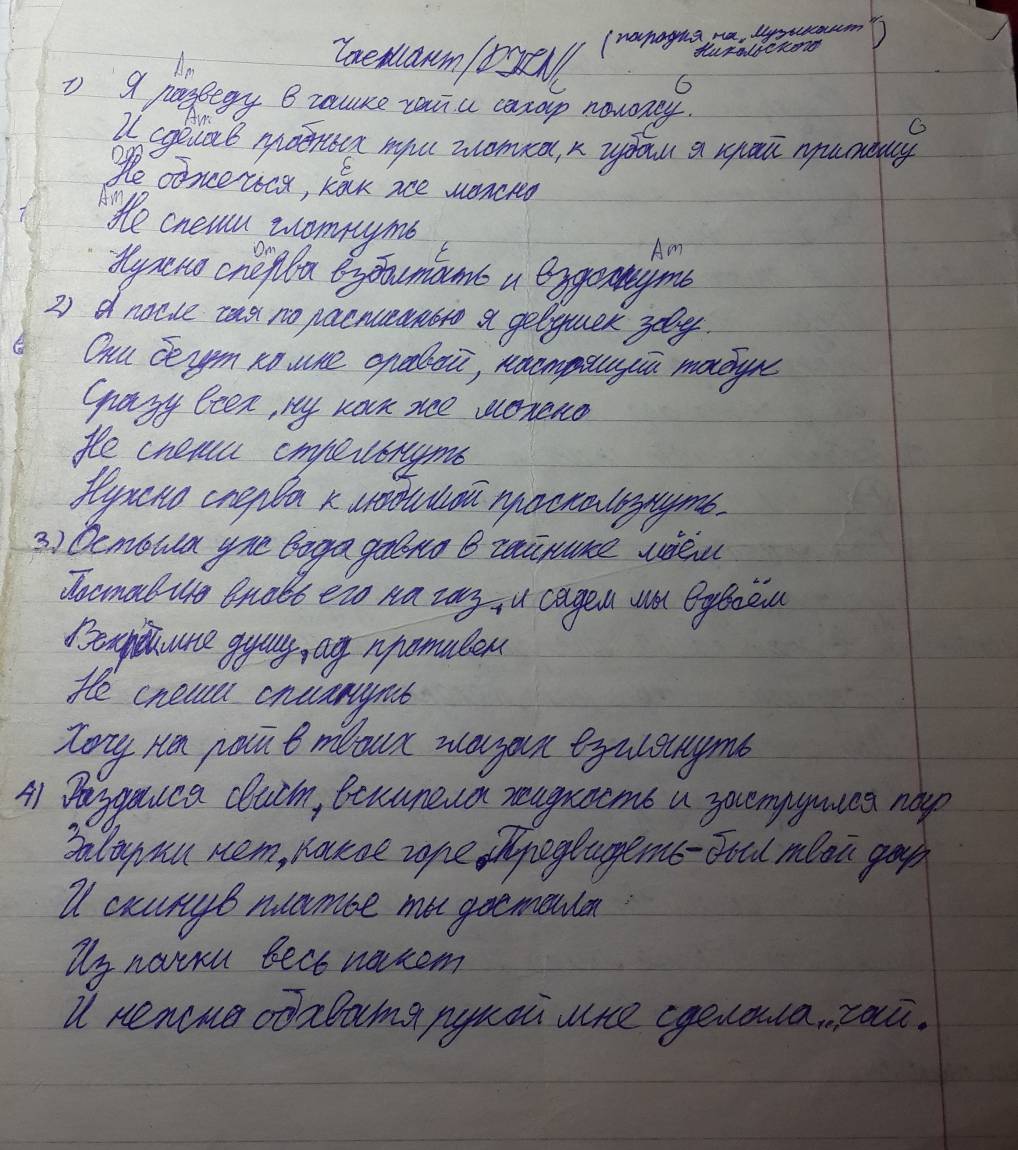 (пародия на „Музыкант"
Никольского)
Чаемант/
Am C G
1) Я разведу в чашке чай и сахар положу.
Am G
И сделав пробных три глотка, к губам я край прижму
Dm E
Не обжечься, как же можно
Am
Не спеши глотнуть
Dm E Am
Нужно сперва взболтать и вздохнуть
2) Я после чая по расписанью я девушек зову.
Они бегут ко мне оравой, настоящий табун
Сразу всех, ну как же можно
Не спеши стрельнуть
Нужно сперва к любимой проскользнуть.
3.) Остыла уже вода давно в чайнике моём
Поставлю вновь его на газ, и сядем мы вдвоём
Вскрой мне душу, ад противен
Не спеши спихнуть
Хочу на рай в твоих глазах взглянуть
4) Раздался свист, вскипела жидкость и заструился пар
Заварки нет, какое горе. Предвидеть - был твой дар
И скинув платье ты достала
Из пачки весь пакет
И нежна обхватя рукой мне сделала... чай.